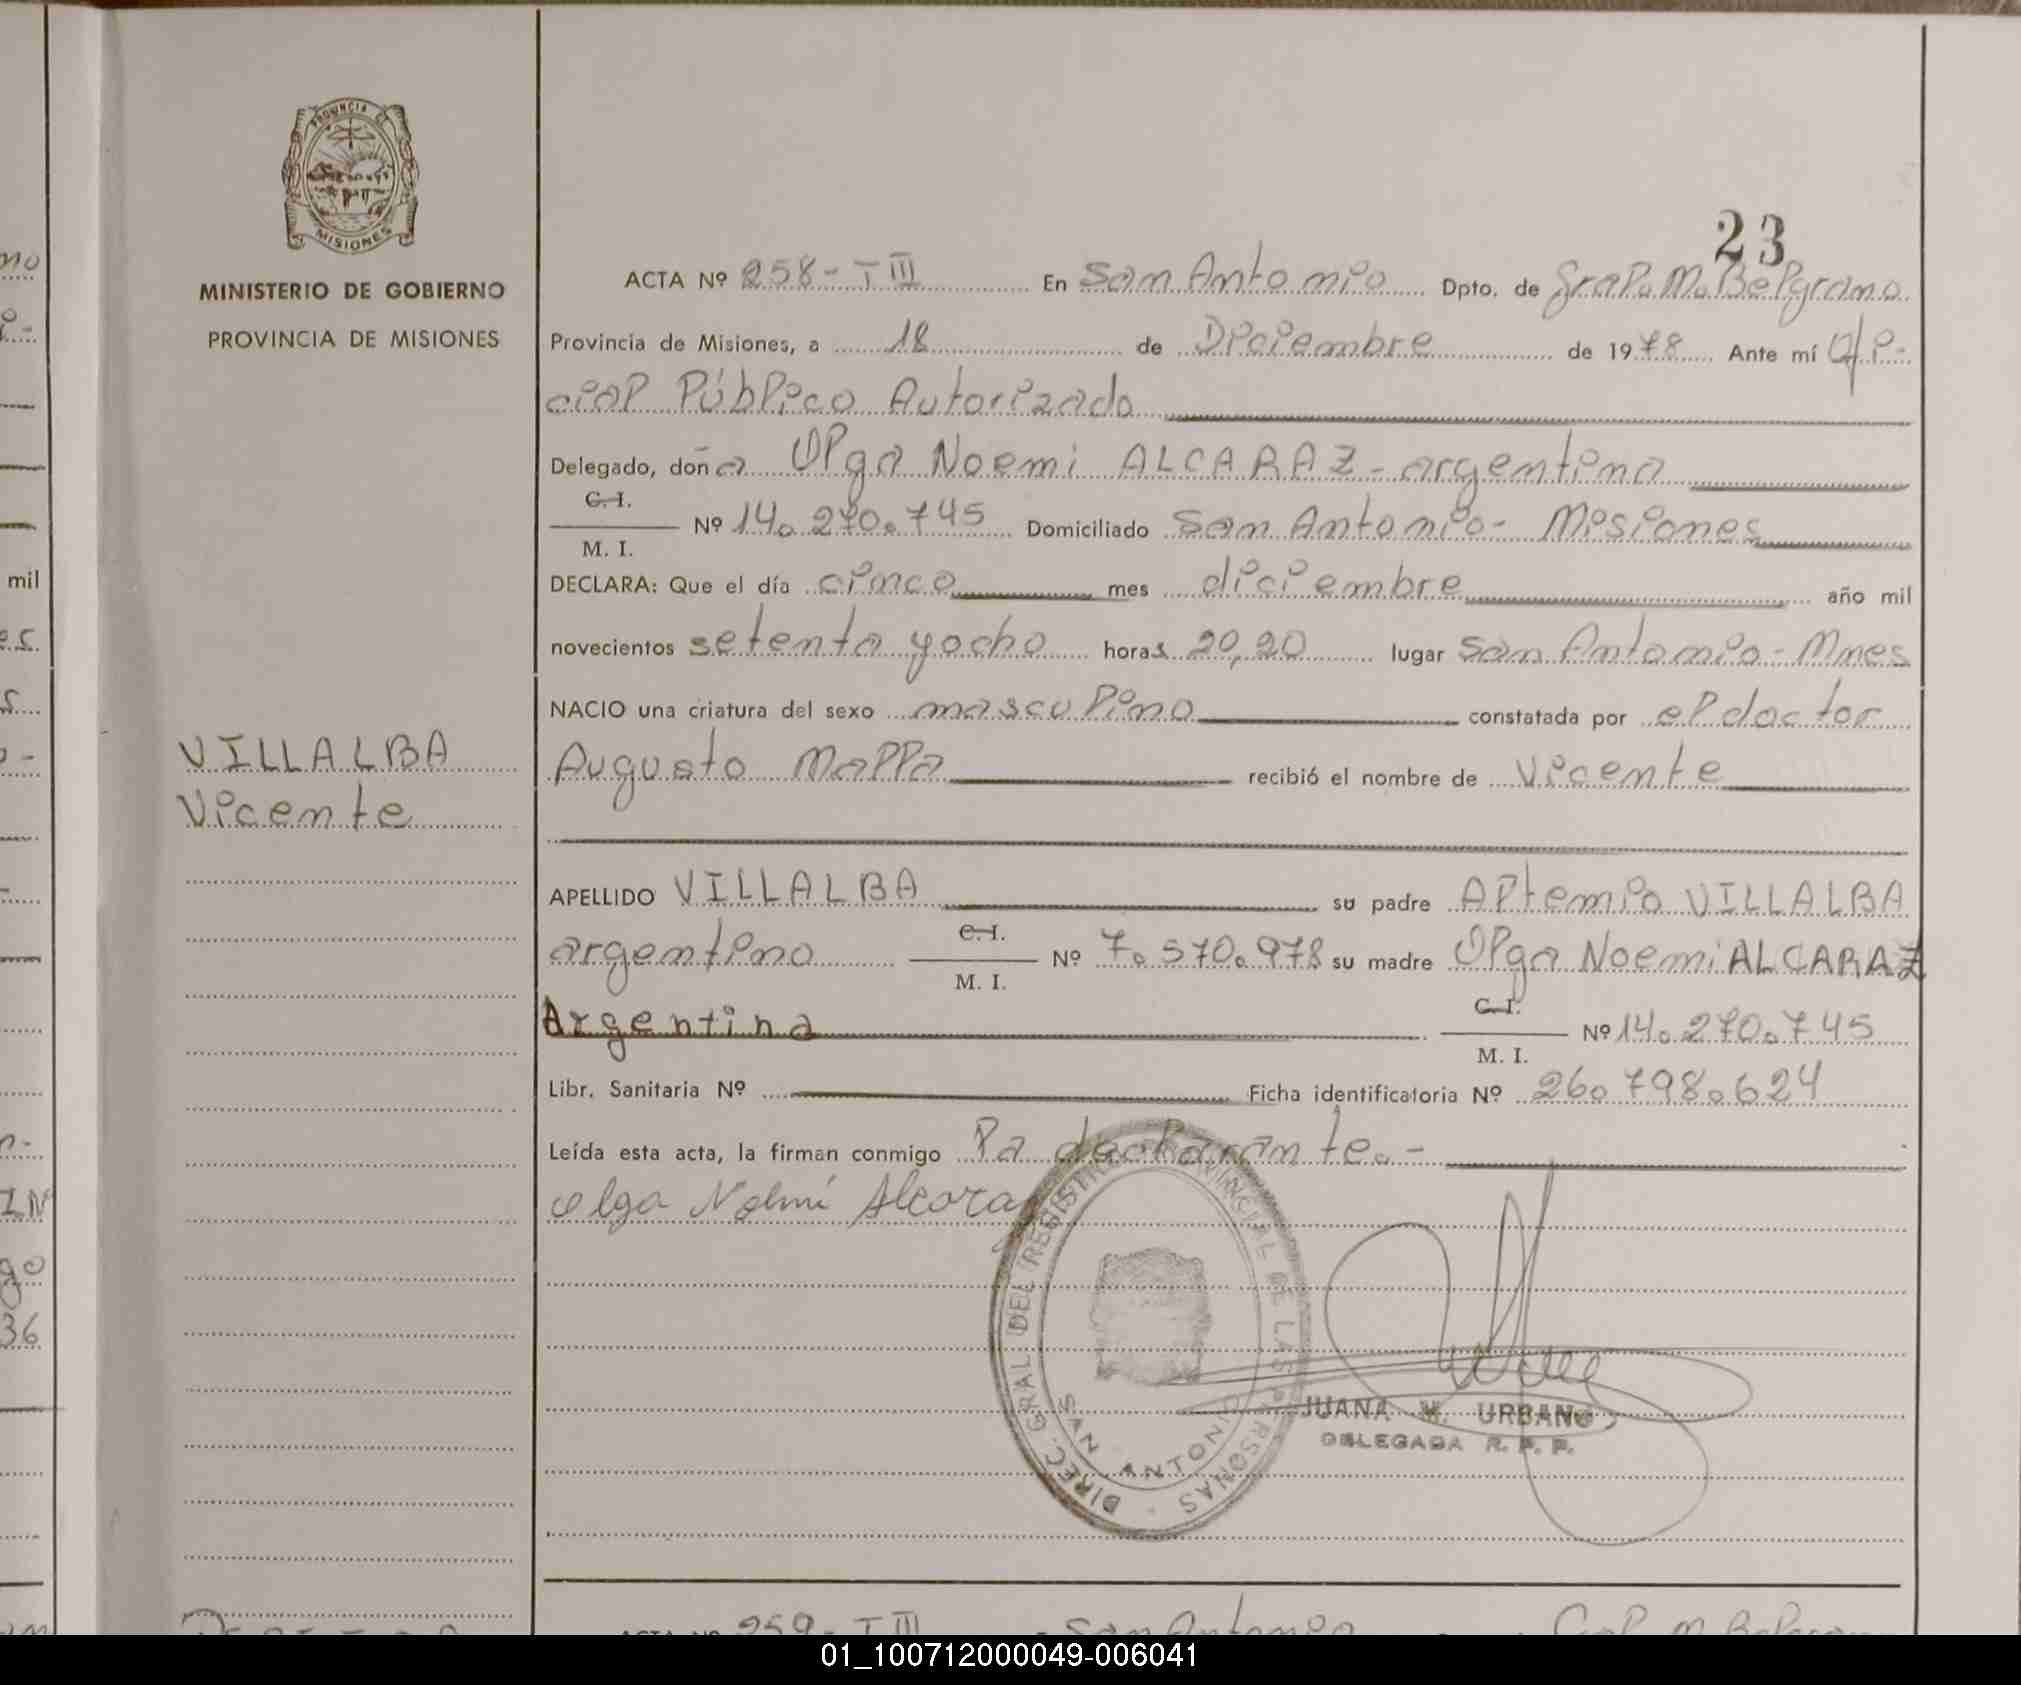 PROVINCIA DE
MISIONES
MINISTERIO DE GOBIERNO
PROVINCIA DE MISIONES
VILLALBA
Vicente
23
ACTA Nº 258-T III En San Antonio Dpto. de Gral. M. Belgrano
Provincia de Misiones, a 18 de Diciembre de 1978 Ante mí Ofi-
cial Público Autorizado
Delegado, doña Olga Noemi ALCARAZ - argentina
C. I.
M. I. Nº 14.270.745 Domiciliado San Antonio - Misiones
DECLARA: Que el día cinco mes diciembre año mil
novecientos setenta y ocho horas 20,20 lugar San Antonio - Mnes
NACIO una criatura del sexo masculino constatada por el doctor
Augusto Malla recibió el nombre de Vicente
APELLIDO VILLALBA su padre Altemio VILLALBA
argentino C. I. M. I. Nº 7.570.978 su madre Olga Noemi ALCARAZ
Argentina C. I. M. I. Nº 14.270.745
Libr. Sanitaria Nº Ficha identificatoria Nº 26.798.624
Leída esta acta, la firman conmigo la declarante.-
Olga Noemí Alcaraz
DIREC. GRAL DEL REGISTRO PROVINCIAL DE LAS PERSONAS
SAN ANTONIO
JUANA M. URBANO
DELEGADA R. P. P.
ACTA Nº 259-T III San Antonio Gral. M. Belgrano
mo
mil
es.
IN
go
36
01_100712000049-006041